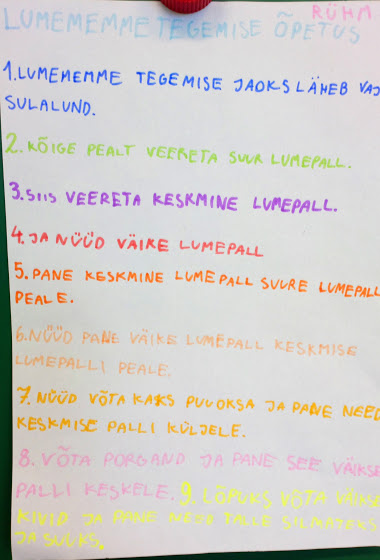 RÜHM
LUMEMEMME TEGEMISE ÕPETUS
1. LUMEMEMME TEGEMISE JAOKS LÄHEB VAJ
SULALUND.
2. KÕIGE PEALT VEERETA SUUR LUMEPALL.
3. SIIS VEERETA KESKMINE LUMEPALL.
4. JA NÜÜD VÄIKE LUMEPALL
5. PANE KESKMINE LUMEPALL SUURE LUMEPALL
PEALE.
6. NÜÜD PANE VÄIKE LUMEPALL KESKMISE
LUMEPALLI PEALE.
7. NÜÜD VÕTA KAKS PUUOKSA JA PANE NEED
KESKMISE PALLI KÜLJELE.
8. VÕTA PORGAND JA PANE SEE VÄIKSE
PALLI KESKELE. 9. LÕPUKS VÕTA VÄIKSE
KIVID JA PANE NEED TALLE SILMATEKS
JA SUUKS.